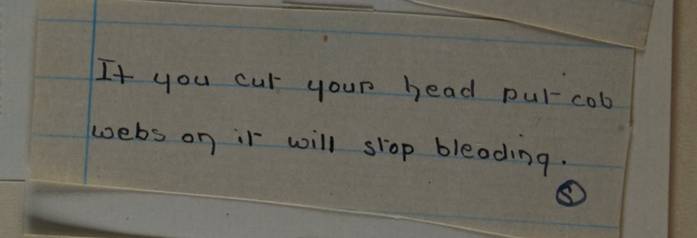 If you cut your head put cob
webs on it will stop bleading.
S